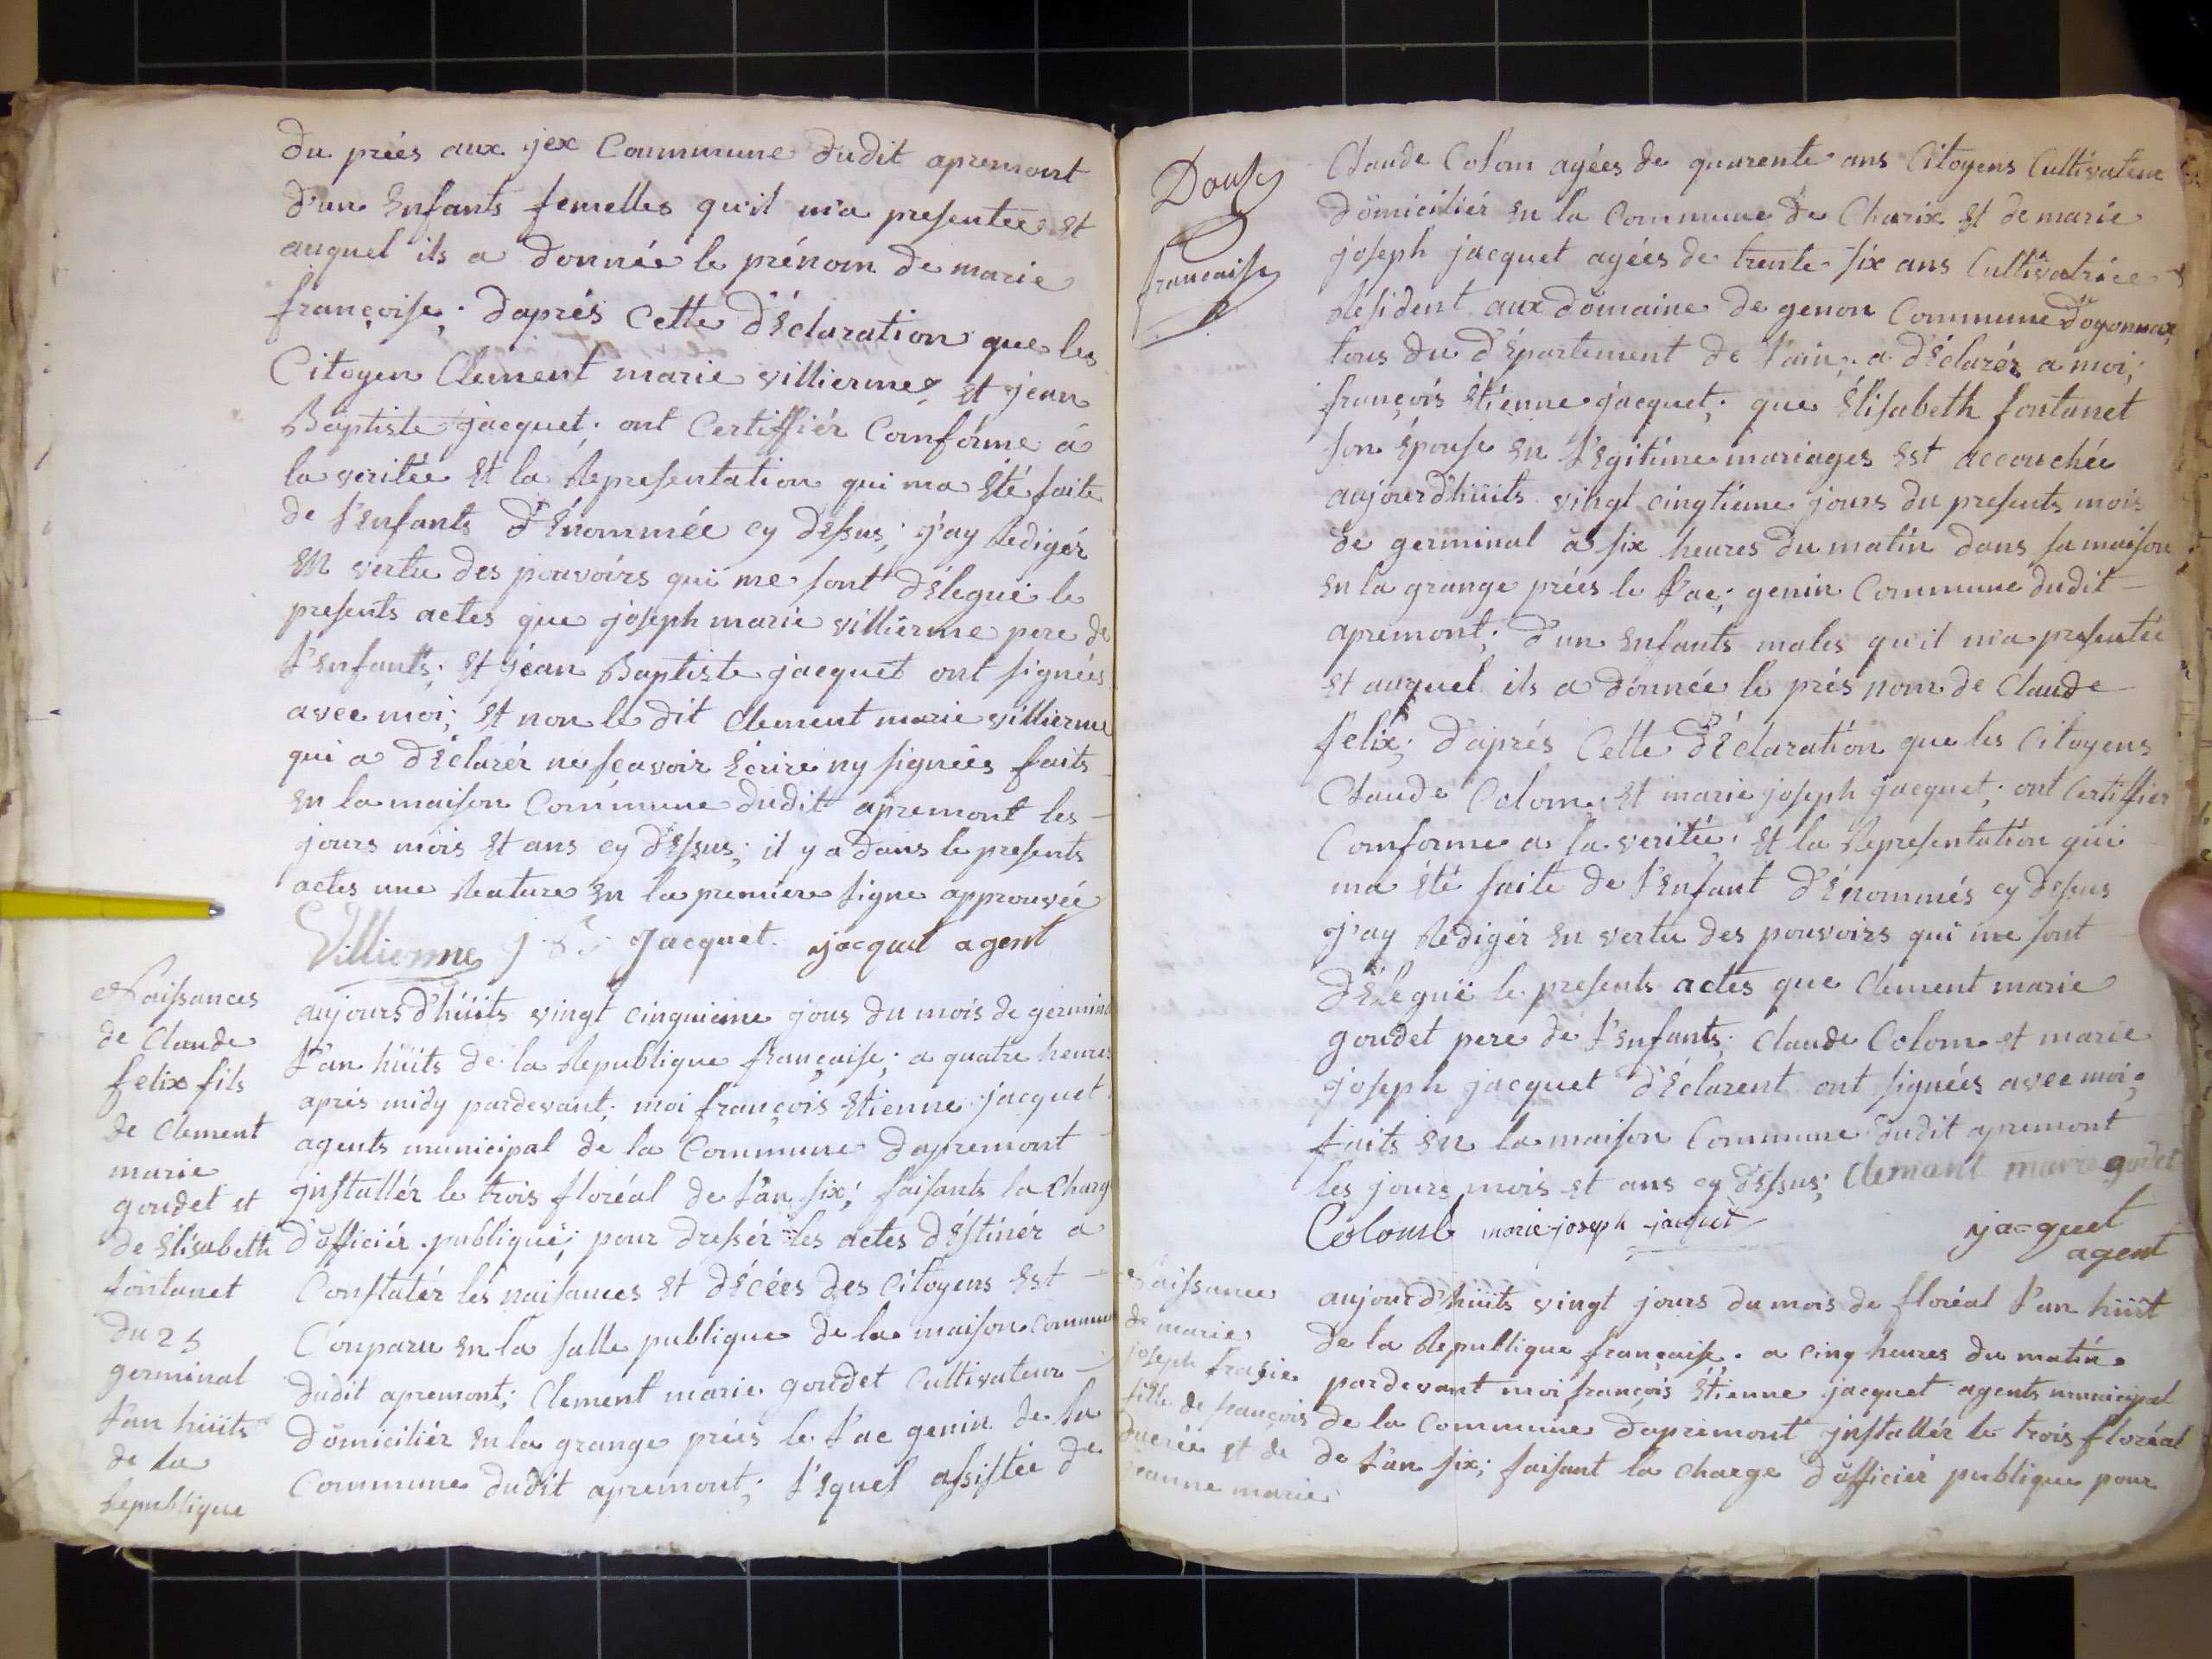 du prées aux jex Commune dudit apremont
d'un Enfants femelles qu'il m'a presentee Et
auquel ils a donnée le prénom de marie
françoise; daprés Cette d'Éclaration que les
Citoyen Clement marie villierme, Et jean
Baptiste jacquet; ont Certiffiér Comforme à
la veritée Et la Representation qui ma Eté faite
de l'Enfants d'Énommée cy dessus; j'ay Redigér
En vertu des pouvoirs qui me sont d'Élegué le
presents actes que joseph marie villierme pere de
l'Enfants; Et jean Baptiste jacquet ont signées
avec moi; Et non le dit Clement marie villierme
qui a d'Éclarér ne sçavoir Ecrire ny signées faits
En la maison Commune dudit apremont les
jours mois Et ans cy dessus; il y a dans le presents
actes une Rature En la premiere ligne approuvée
Villierme j B Jacquet jacquet agent
Naissances
de Claude
felix fils
de Clement
marie
goudet et
de Élisabeth
fontanet
du 25
germinal
l'an hüits
de la
Republique
aujours d'hüits vingt cinquieme jous du mois de germinal
l'an hüits de la Republique française; a quatre heures
aprés midy pardevant; moi françois Etienne jacquet
agents municipal de la Commune dapremont
jnstallér le trois floréal de l'an six; faisants la Charge
d'officiér publique; pour dressér les actes d'éstinér a
Constatér les naisances Et décées des Citoyens Est
Conparu En la salle publique de la maison commune
dudit apremont; Clement marie goudet Cultivateur
domiciliér En la grange prées le lac genin de la
Commune dudit apremont; l'Equel assistée de
Douse
francaise
Claude Colom agées de quarente ans Citoyens Cultivateur
domiciliér En la Commune de Charix Et de marie
joseph jacquet agées de trente six ans Cultivatrice
Resident aux domaine de genon Commune doyonnax
tous du d'Epartement de l'ain; a d'Éclarér a moi;
françois Étienne jacquet; que Élisabeth fontanet
son Épouse En l'Egitime mariages Est accouchée
aujourd'hüits vingt cinqtieme jours du presents mois
de germinal à six heures du matin dans sa maison
En la grange prées le lac; genin Commune dudit
apremont; d'un Enfants males qu'il m'a presentée
Et auquel ils a donnée le prés nom de Claude
felix; d'aprés Cette d'Éclaration que les Citoyens
Claude Colom; Et marie joseph jacquet; ont Certiffier
Comforme a la veritée; Et la Representation qui
ma été faite de l'Enfant d'Énommés cy dessus
j'ay Redigér En vertu des pouvoirs qui me sont
d'Élegué le presents actes que Clement marie
goudet pere de l'Enfants; Claude Colom et marie
joseph jacquet d'Éclarent ont signées avec moi;
faits En la maison Commune dudit apremont
les jours mois et ans cy dessus; Clemant marie godet
Colomb marie joseph jacquet jacquet
agent
Naissance
de marie
joseph frasie
fille de françois
ducrée et de
jeanne marie
aujourd'hüits vingt jours du mois de floréal l'an hüit
de la Republique française. a cinq heures du matin
pardevant moi françois Étienne jacquet agents municipal
de la Commune dapremont jnstallér le trois floréal
de l'an six; faisant la charge d'officiér publique pour